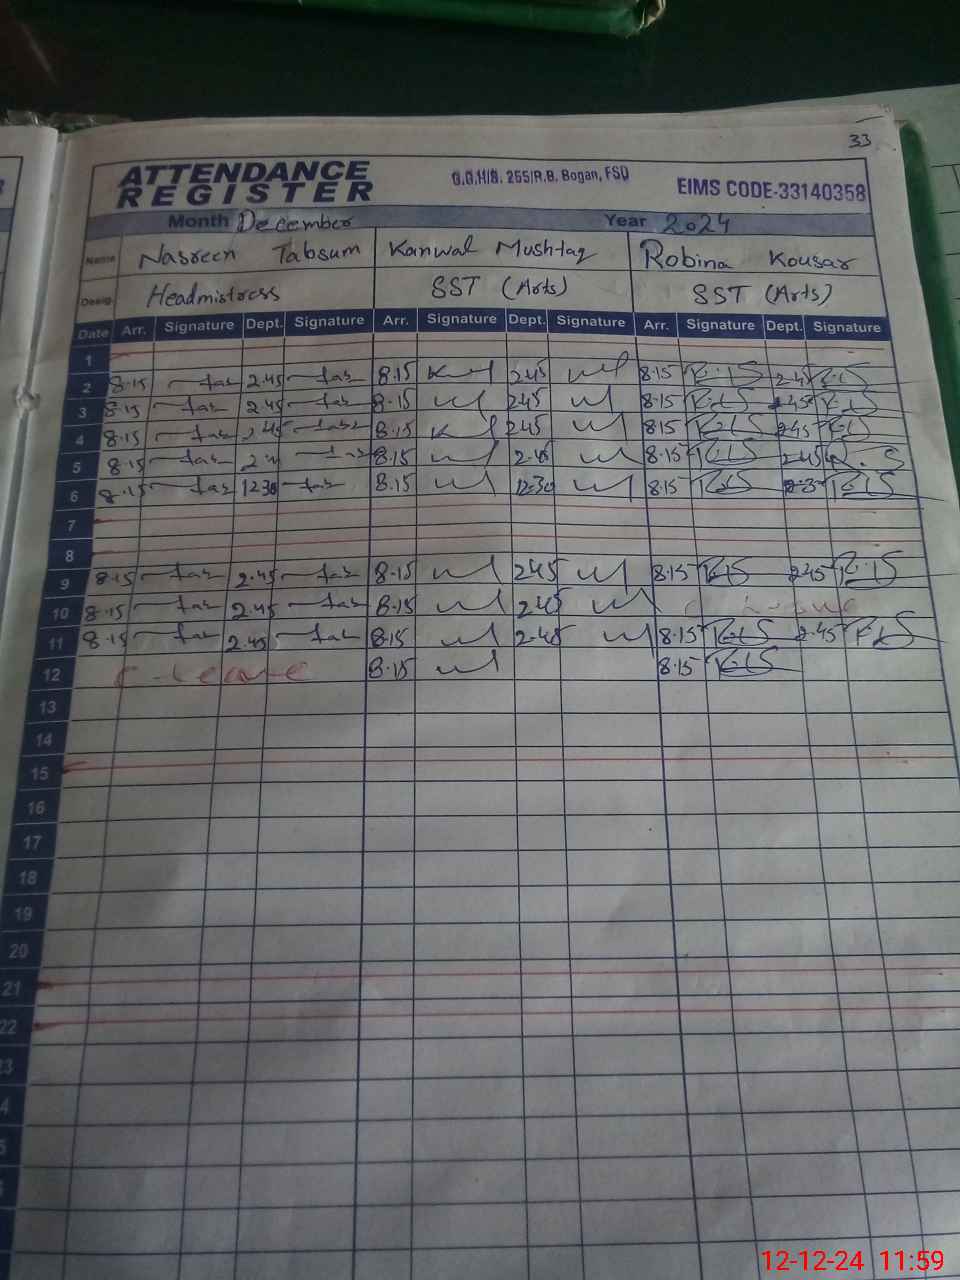 33
ATTENDANCE REGISTER
G.G.H/S. 255/R.B. Bogan, FSD
EIMS CODE-33140358
Month December Year 2024
Name Nasreen Tabsum Kanwal Mushtaq Robina Kousar
Desig. Headmistress SST (Arts) SST (Arts)
Date Arr. Signature Dept. Signature Arr. Signature Dept. Signature Arr. Signature Dept. Signature
1
2 8.15 2.45 8.15 2.45 8.15 2.45
3 8.15 2.45 8.15 2.45 8.15 2.45
4 8.15 2.45 8.15 2.45 8.15 2.45
5 8.15 8.15 2.45 8.15 2.45
6 8.15 12.30 8.15 12.30 8.15
7
8
9 8.15 2.45 8.15 2.45 8.15 2.45
10 8.15 2.45 8.15 2.45
11 8.15 2.45 8.15 2.45 8.15 2.45
12 C-Leave 8.15 8.15
13
14
15
16
17
18
19
20
21
22
12-12-24 11:59